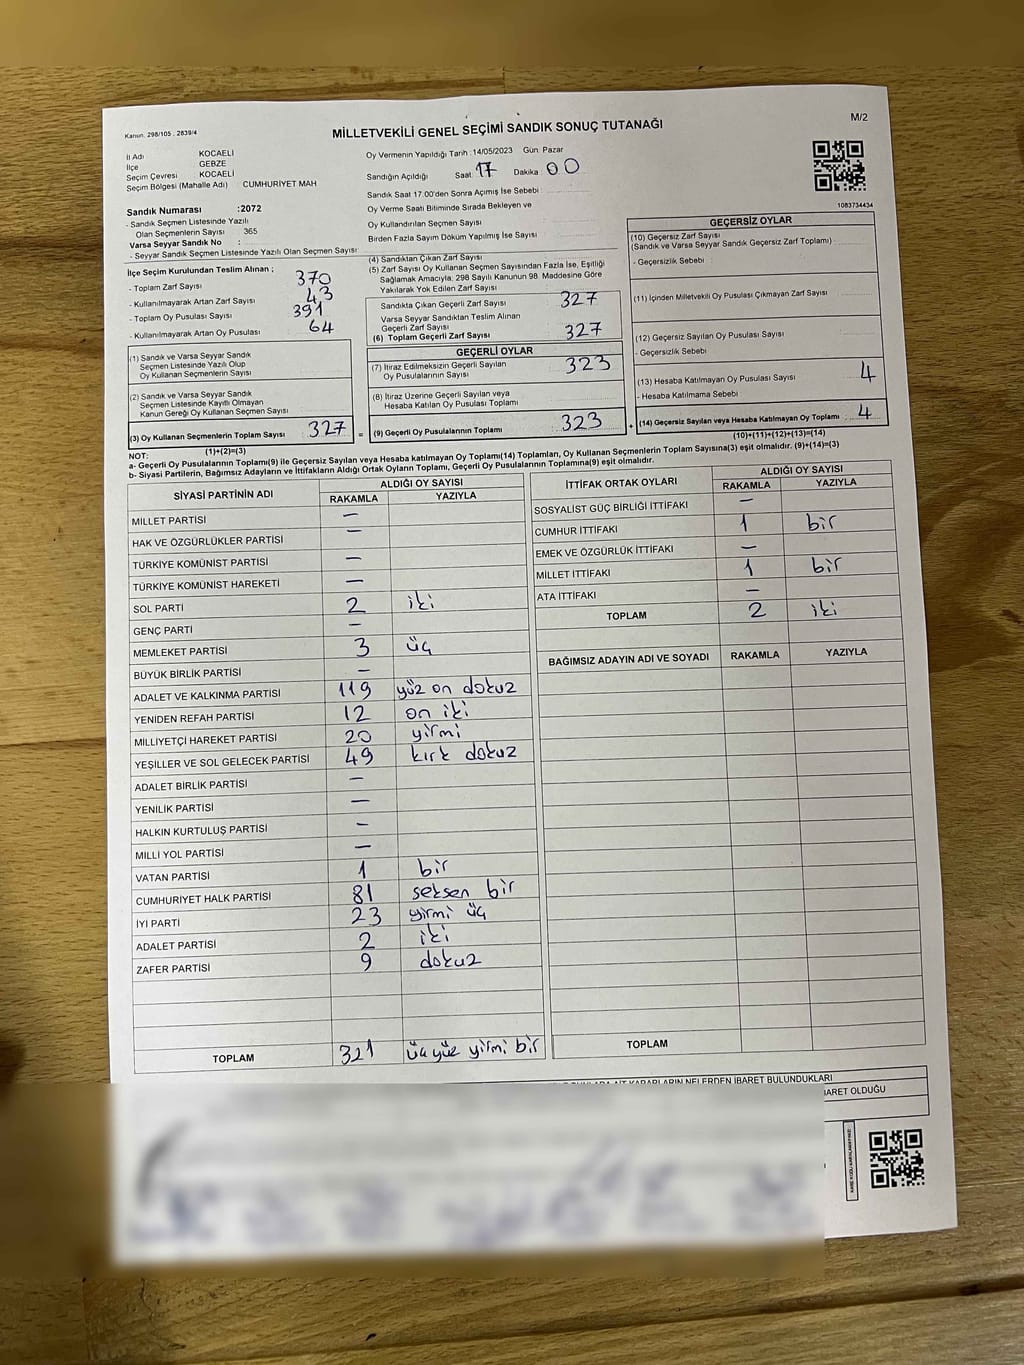 Kanun. 298/105 , 2839/4
MİLLETVEKİLİ GENEL SEÇİMİ SANDIK SONUÇ TUTANAĞI
M/2
İl Adı KOCAELİ
İlçe GEBZE
Seçim Çevresi KOCAELİ
Seçim Bölgesi (Mahalle Adı) CUMHURİYET MAH
Sandık Numarası :2072
- Sandık Seçmen Listesinde Yazılı
Olan Seçmenlerin Sayısı 365
Varsa Seyyar Sandık No :
- Seyyar Sandık Seçmen Listesinde Yazılı Olan Seçmen Sayısı
İlçe Seçim Kurulundan Teslim Alınan ;
- Toplam Zarf Sayısı 370
- Kullanılmayarak Artan Zarf Sayısı 43
- Toplam Oy Pusulası Sayısı 391
- Kullanılmayarak Artan Oy Pusulası 64
(1) Sandık ve Varsa Seyyar Sandık
Seçmen Listesinde Yazılı Olup
Oy Kullanan Seçmenlerin Sayısı
(2) Sandık ve Varsa Seyyar Sandık
Seçmen Listesinde Kayıtlı Olmayan
Kanun Gereği Oy Kullanan Seçmen Sayısı
(3) Oy Kullanan Seçmenlerin Toplam Sayısı 327 =
(1)+(2)=(3)
Oy Vermenin Yapıldığı Tarih :14/05/2023 Gün: Pazar
Sandığın Açıldığı Saat: 17 Dakika: 00
Sandık Saat 17.00'den Sonra Açımış İse Sebebi :
Oy Verme Saati Bitiminde Sırada Bekleyen ve
Oy Kullandırılan Seçmen Sayısı
Birden Fazla Sayım Döküm Yapılmış İse Sayısı
(4) Sandıktan Çıkan Zarf Sayısı
(5) Zarf Sayısı Oy Kullanan Seçmen Sayısından Fazla İse, Eşitliği
Sağlamak Amacıyla, 298 Sayılı Kanunun 98. Maddesine Göre
Yakılarak Yok Edilen Zarf Sayısı
Sandıkta Çıkan Geçerli Zarf Sayısı 327
Varsa Seyyar Sandıktan Teslim Alınan
Geçerli Zarf Sayısı
(6) Toplam Geçerli Zarf Sayısı 327
GEÇERLİ OYLAR
(7) İtiraz Edilmeksizin Geçerli Sayılan
Oy Pusulalarının Sayısı 323
(8) İtiraz Üzerine Geçerli Sayılan veya
Hesaba Katılan Oy Pusulası Toplamı
(9) Geçerli Oy Pusulalarının Toplamı 323 +
1083734434
GEÇERSİZ OYLAR
(10) Geçersiz Zarf Sayısı
(Sandık ve Varsa Seyyar Sandık Geçersiz Zarf Toplamı)
- Geçersizlik Sebebi :
(11) İçinden Milletvekili Oy Pusulası Çıkmayan Zarf Sayısı
(12) Geçersiz Sayılan Oy Pusulası Sayısı
- Geçersizlik Sebebi
(13) Hesaba Katılmayan Oy Pusulası Sayısı 4
- Hesaba Katılmama Sebebi
(14) Geçersiz Sayılan veya Hesaba Katılmayan Oy Toplamı 4
(10)+(11)+(12)+(13)=(14)
NOT:
a- Geçerli Oy Pusulalarının Toplamı(9) ile Geçersiz Sayılan veya Hesaba katılmayan Oy Toplamı(14) Toplamları, Oy Kullanan Seçmenlerin Toplam Sayısına(3) eşit olmalıdır. (9)+(14)=(3)
b- Siyasi Partilerin, Bağımsız Adayların ve İttifakların Aldığı Ortak Oyların Toplamı, Geçerli Oy Pusulalarının Toplamına(9) eşit olmalıdır.
SİYASİ PARTİNİN ADI ALDIĞI OY SAYISI
RAKAMLA YAZIYLA
MİLLET PARTİSİ –
HAK VE ÖZGÜRLÜKLER PARTİSİ –
TÜRKİYE KOMÜNİST PARTİSİ –
TÜRKİYE KOMÜNİST HAREKETİ –
SOL PARTİ 2 iki
GENÇ PARTİ –
MEMLEKET PARTİSİ 3 üç
BÜYÜK BİRLİK PARTİSİ –
ADALET VE KALKINMA PARTİSİ 119 yüz on dokuz
YENİDEN REFAH PARTİSİ 12 on iki
MİLLİYETÇİ HAREKET PARTİSİ 20 yirmi
YEŞİLLER VE SOL GELECEK PARTİSİ 49 kırk dokuz
ADALET BİRLİK PARTİSİ –
YENİLİK PARTİSİ –
HALKIN KURTULUŞ PARTİSİ –
MİLLİ YOL PARTİSİ –
VATAN PARTİSİ 1 bir
CUMHURİYET HALK PARTİSİ 81 seksen bir
İYİ PARTİ 23 yirmi üç
ADALET PARTİSİ 2 iki
ZAFER PARTİSİ 9 dokuz
TOPLAM 321 üçyüz yirmi bir
İTTİFAK ORTAK OYLARI ALDIĞI OY SAYISI
RAKAMLA YAZIYLA
SOSYALİST GÜÇ BİRLİĞİ İTTİFAKI –
CUMHUR İTTİFAKI 1 bir
EMEK VE ÖZGÜRLÜK İTTİFAKI –
MİLLET İTTİFAKI 1 bir
ATA İTTİFAKI –
TOPLAM 2 iki
BAĞIMSIZ ADAYIN ADI VE SOYADI RAKAMLA YAZIYLA
TOPLAM
KARARLARIN NELERDEN İBARET BULUNDUKLARI
OLDUĞU